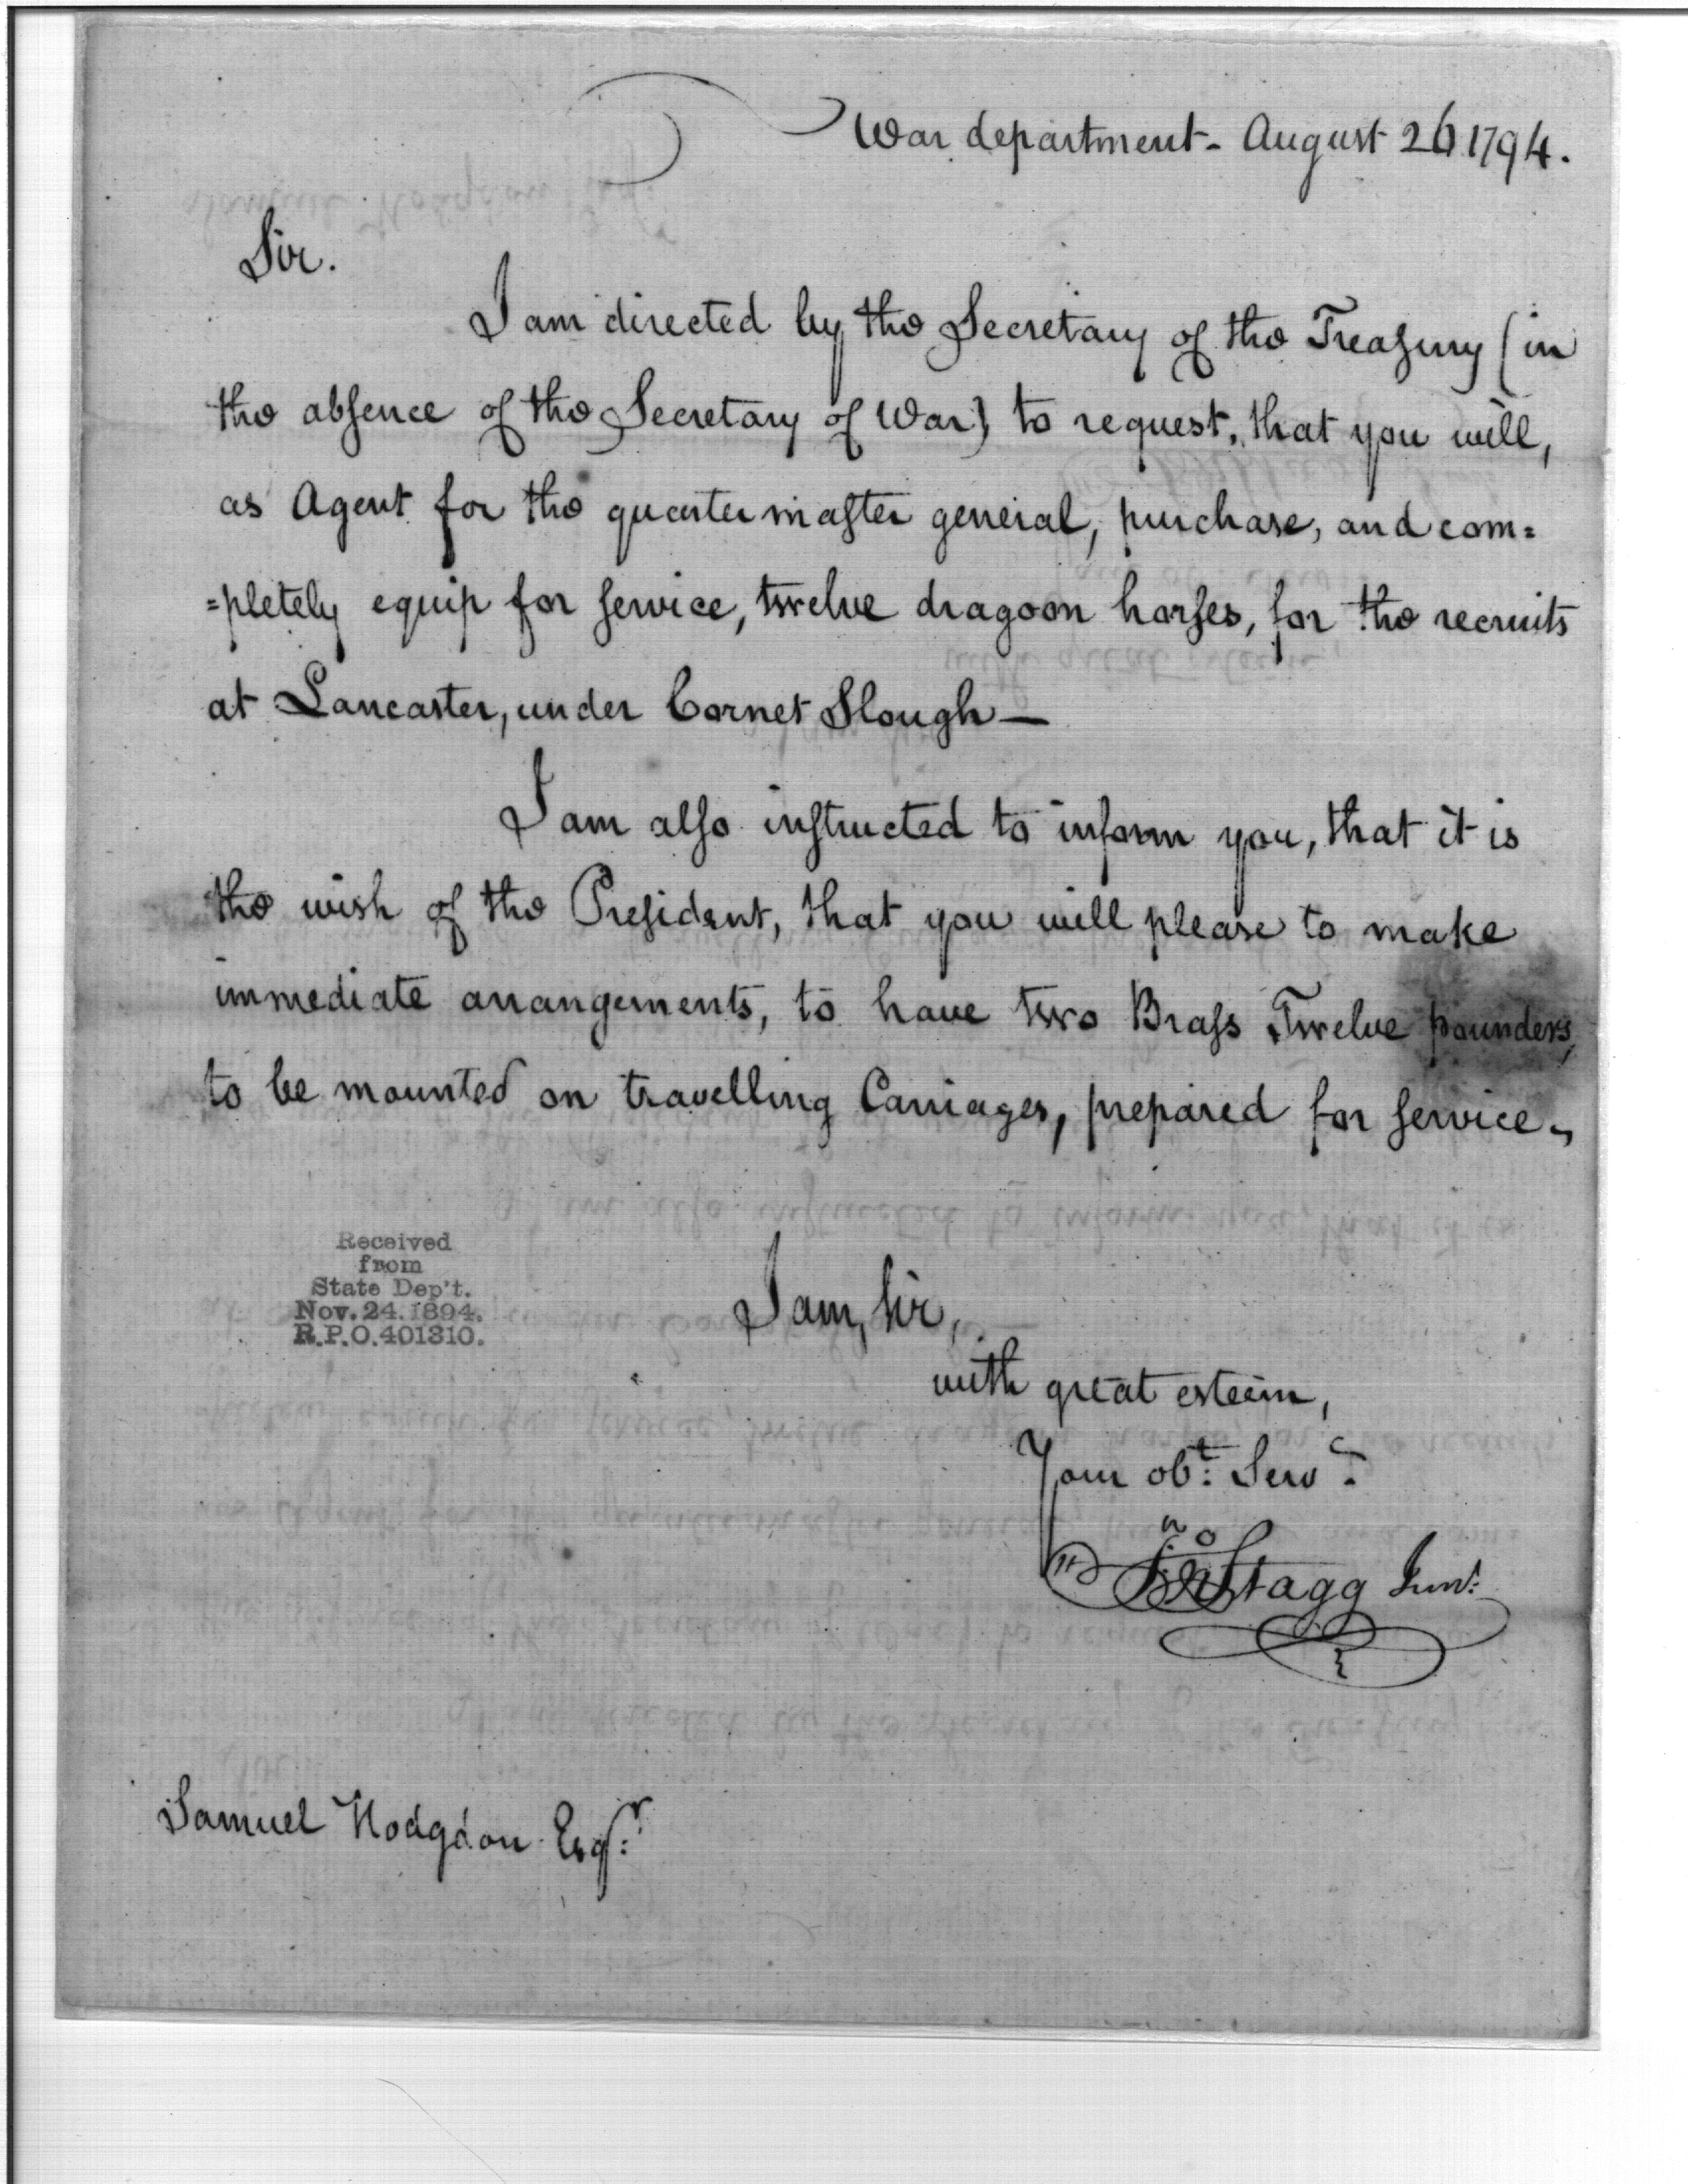 War department - August 26 1794.
Sir.
I am directed by the Secretary of the Treasury (in
the absence of the Secretary of War) to request, that you will,
as Agent for the quartermaster general, purchase, and com=
=pletely equip for service, twelve dragoon horses, for the recruits
at Lancaster, under Cornet Slough—
I am also instructed to inform you, that it is
the wish of the President, that you will please to make
immediate arrangements, to have two Brass Twelve pounders,
to be mounted on travelling Carriages, prepared for service.
Received
from
State Dep't.
Nov. 24. 1894.
R.P.O. 401310.
I am, Sir,
with great esteem,
Your obt: Servt:
Jno Stagg Junr:
Samuel Hodgdon Esqr: